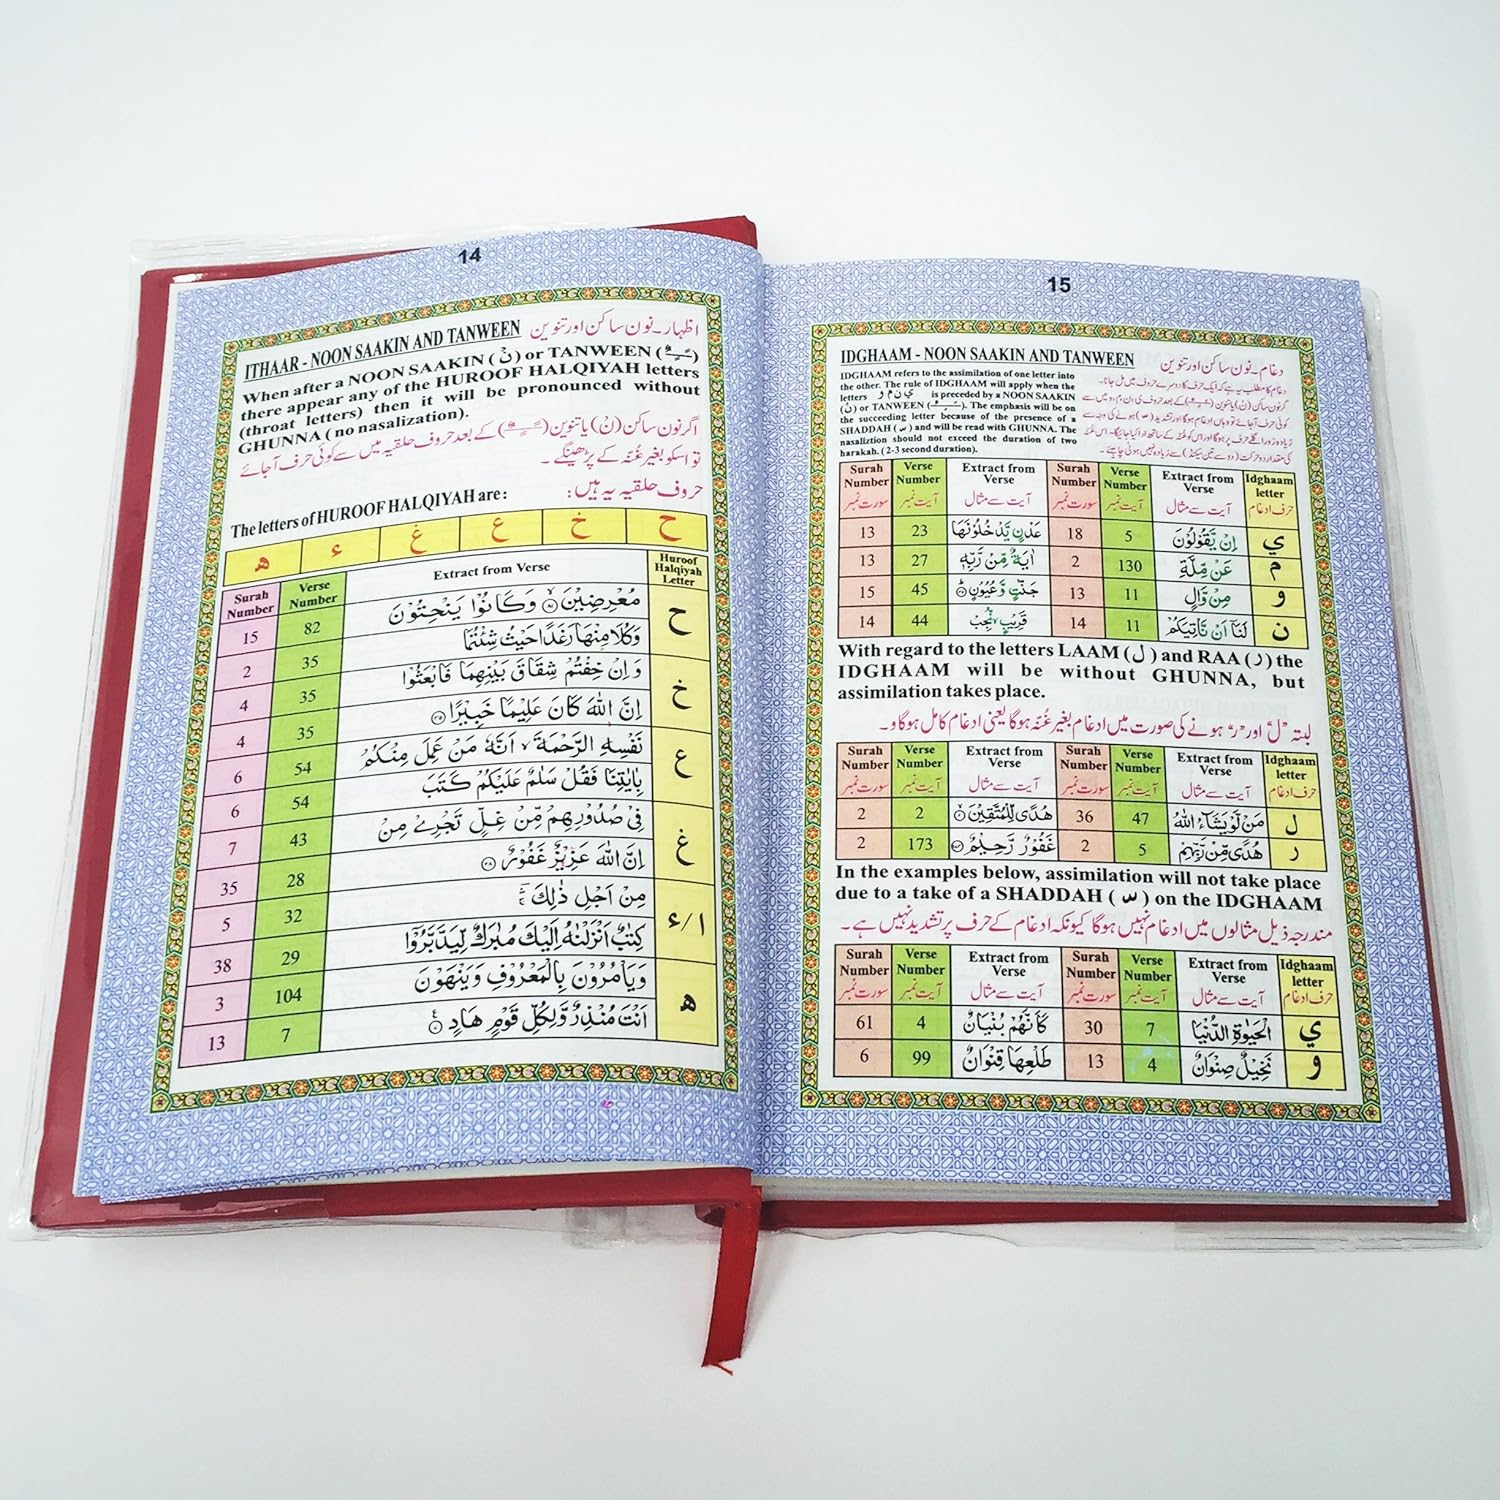 14
ITHAAR - NOON SAAKIN AND TANWEEN اظہار۔ نون ساکن اور تنوین
When after a NOON SAAKIN (نْ) or TANWEEN ( )
there appear any of the HUROOF HALQIYAH letters
(throat letters) then it will be pronounced without
GHUNNA ( no nasalization).
اگر نون ساکن (نْ) یا تنوین ( ) کے بعد حروف حلقیہ میں سے کوئی حرف آجائے
تو اسکو بغیر غنّہ کے پڑھینگے۔
The letters of HUROOF HALQIYAH are: حروف حلقیہ یہ ہیں:
ه ء غ ع خ ح
Surah Number Verse Number Extract from Verse Huroof Halqiyah Letter
15 82 مُعْرِضِيْنَ وَكَانُوْا يَنْحِتُوْنَ ح
2 35 وَكُلَا مِنْهَا رَغَدًا حَيْثُ شِئْتُمَا
4 35 وَاِنْ خِفْتُمْ شِقَاقَ بَيْنِهِمَا فَابْعَثُوْا خ
4 35 اِنَّ اللهَ كَانَ عَلِيْمًا خَبِيْرًا
6 54 نَفْسِهِ الرَّحْمَةَ اَنَّهٗ مَنْ عَمِلَ مِنْكُمْ ع
6 54 بِاٰيٰتِنَا فَقُلْ سَلٰمٌ عَلَيْكُمْ كَتَبَ
7 43 فِيْ صُدُوْرِهِمْ مِّنْ غِلٍّ تَجْرِيْ مِنْ غ
35 28 اِنَّ اللهَ عَزِيْزٌ غَفُوْرٌ
5 32 مِنْ اَجْلِ ذٰلِكَ ا/ء
38 29 كِتٰبٌ اَنْزَلْنٰهُ اِلَيْكَ مُبٰرَكٌ لِّيَدَّبَّرُوْٓا
3 104 وَيَاْمُرُوْنَ بِالْمَعْرُوْفِ وَيَنْهَوْنَ ه
13 7 اَنْتَ مُنْذِرٌ وَّلِكُلِّ قَوْمٍ هَادٍ
15
IDGHAAM - NOON SAAKIN AND TANWEEN دغام۔ نون ساکن اور تنوین
IDGHAAM refers to the assimilation of one letter into
the other. The rule of IDGHAAM will apply when the
letters ي ن م و is preceded by a NOON SAAKIN
(نْ) or TANWEEN ( ). The emphasis will be on
the succeeding letter because of the presence of a
SHADDAH ( ّ ) and will be read with GHUNNA. The
nasaliztion should not exceed the duration of two
harakah. ( 2-3 second duration).
دغام کا مطلب یہ ہے کہ ایک حرف کا دوسرے حروف میں مل جانا۔
Surah Number Verse Number Extract from Verse Surah Number Verse Number Extract from Verse Idghaam letter
سورت نمبر آیت نمبر آیت سے مثال سورت نمبر آیت نمبر آیت سے مثال حرف ادغام
13 23 عَدْنٍ يَّدْخُلُوْنَهَا 18 5 اِنْ يَّقُوْلُوْنَ ي
13 27 اٰيَةٌ مِّنْ رَّبِّهٖ 2 130 عَنْ مِّلَّةِ م
15 45 جَنّٰتٍ وَّعُيُوْنٍ 13 11 مِنْ وَّالٍ و
14 44 قَرِيْبٍ نُّجِبْ 14 11 لَنَآ اَنْ نَّاْتِيَكُمْ ن
With regard to the letters LAAM (ل) and RAA (ر) the
IDGHAAM will be without GHUNNA, but
assimilation takes place.
لبتہ "ل" اور "ر" ہونے کی صورت میں ادغام بغیر غنّہ ہوگا یعنی ادغام کامل ہوگا و۔
Surah Number Verse Number Extract from Verse Surah Number Verse Number Extract from Verse Idghaam letter
سورت نمبر آیت نمبر آیت سے مثال سورت نمبر آیت نمبر آیت سے مثال حرف ادغام
2 2 هُدًى لِّلْمُتَّقِيْنَ 36 47 مَنْ لَّوْ يَشَآءُ اللهُ ل
2 173 غَفُوْرٌ رَّحِيْمٌ 2 5 هُدًى مِّنْ رَّبِّهِمْ ر
In the examples below, assimilation will not take place
due to a take of a SHADDAH ( ّ ) on the IDGHAAM
مندرجہ ذیل مثالوں میں ادغام نہیں ہوگا کیونکہ ادغام کے حرف پر تشدید نہیں ہے۔
Surah Number Verse Number Extract from Verse Surah Number Verse Number Extract from Verse Idghaam letter
سورت نمبر آیت نمبر آیت سے مثال سورت نمبر آیت نمبر آیت سے مثال حرف ادغام
61 4 كَاَنَّهُمْ بُنْيَانٌ 30 7 الْحَيٰوةِ الدُّنْيَا ي
6 99 طَلْعِهَا قِنْوَانٌ 13 4 نَخِيْلٌ صِنْوَانٌ و